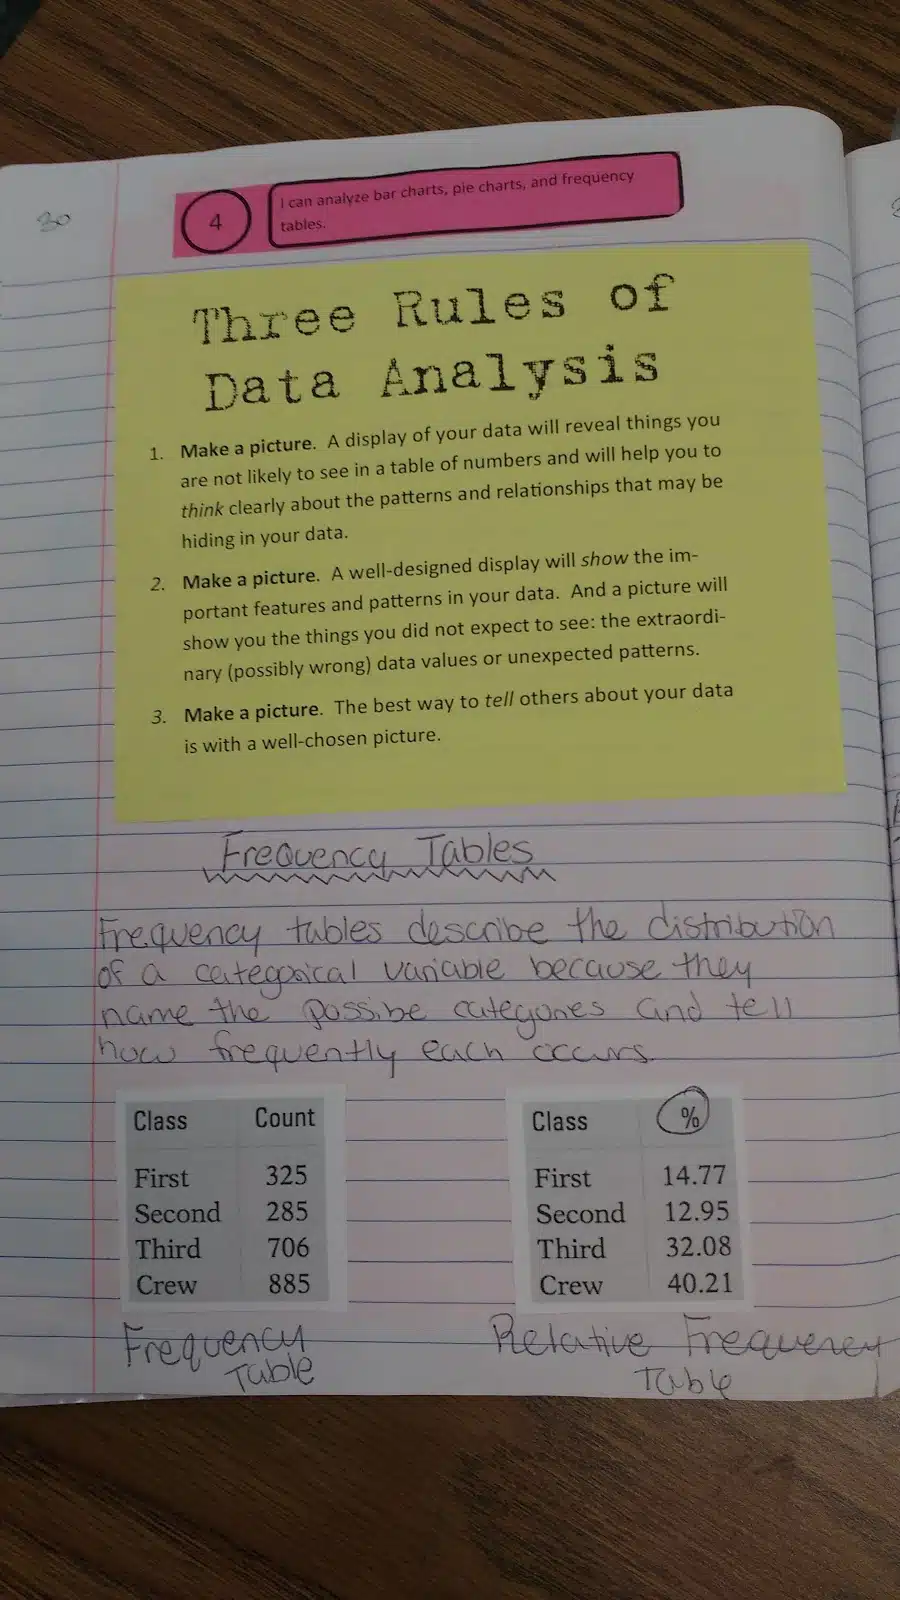 30
4
I can analyze bar charts, pie charts, and frequency
tables.
Three Rules of
Data Analysis
1. Make a picture. A display of your data will reveal things you
are not likely to see in a table of numbers and will help you to
think clearly about the patterns and relationships that may be
hiding in your data.
2. Make a picture. A well-designed display will show the im-
portant features and patterns in your data. And a picture will
show you the things you did not expect to see: the extraordi-
nary (possibly wrong) data values or unexpected patterns.
3. Make a picture. The best way to tell others about your data
is with a well-chosen picture.
Frequency Tables
Frequency tables describe the distribution
of a categorical variable because they
name the possibe categories and tell
how frequently each occurs.
Class Count
First 325
Second 285
Third 706
Crew 885
Frequency
Table
Class %
First 14.77
Second 12.95
Third 32.08
Crew 40.21
Relative Frequency
Table